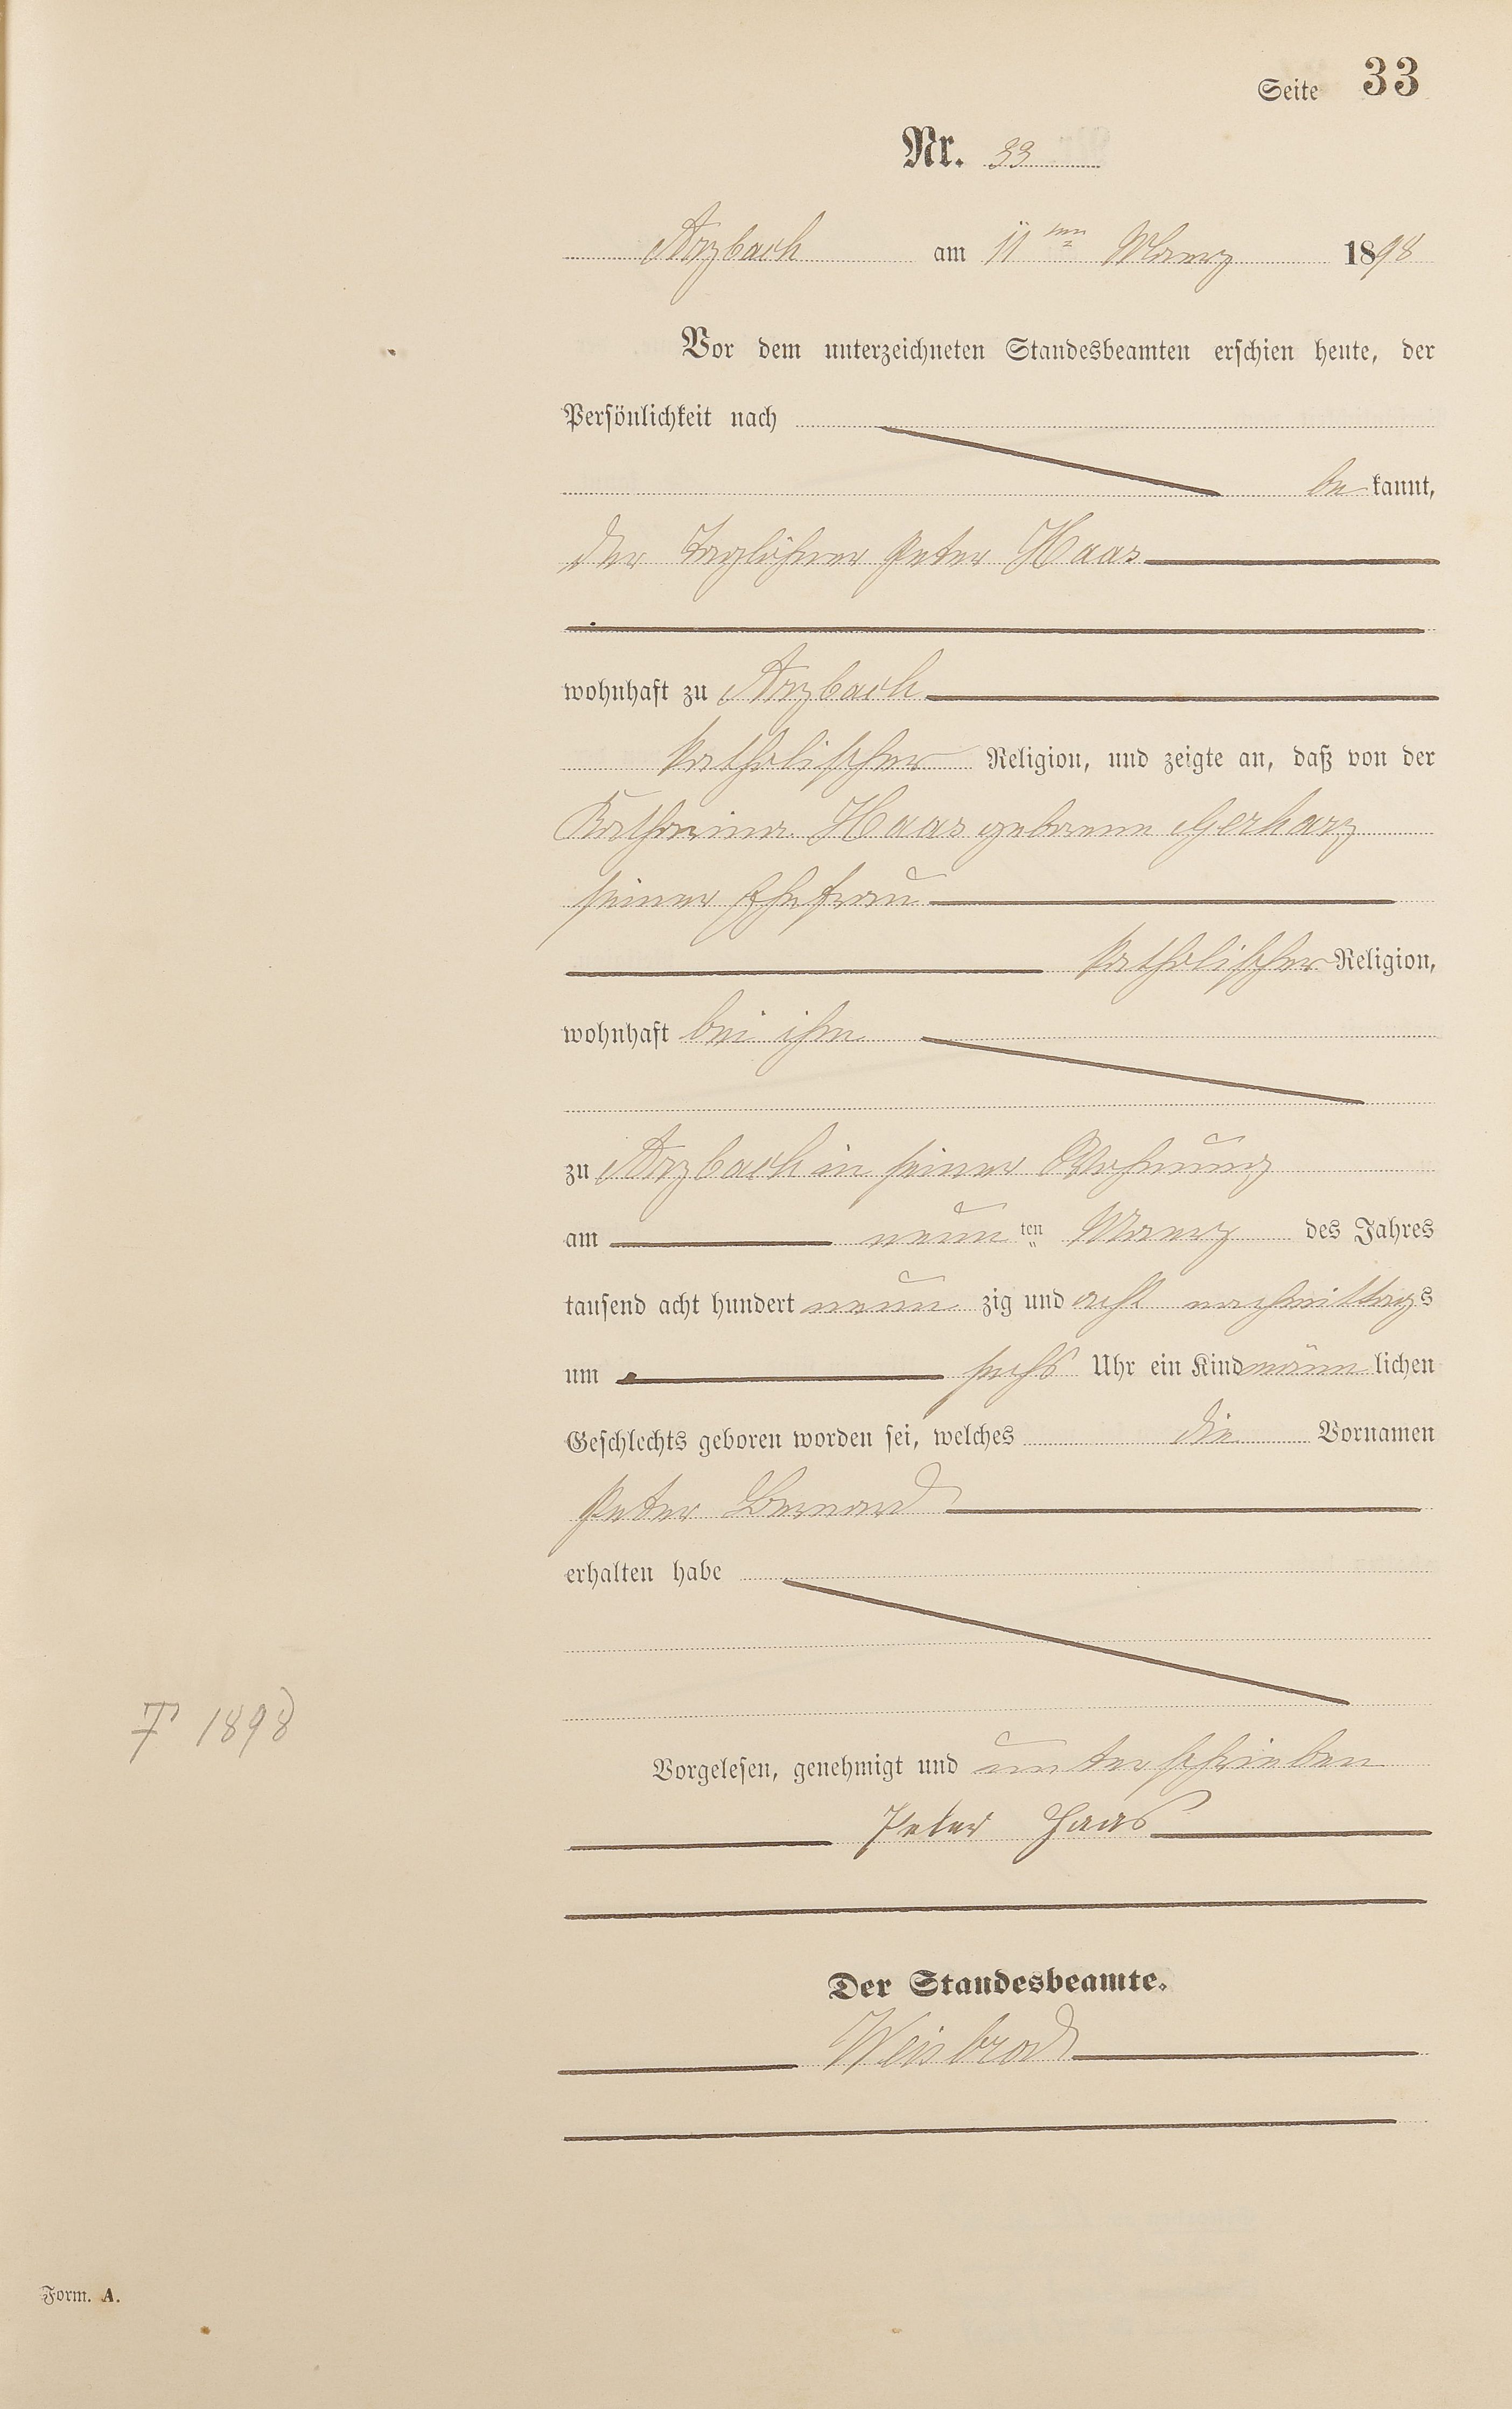 Seite 33
Nr. 33
Arzbach am 11ten Maerz 1898
Vor dem unterzeichneten Standesbeamten erschien heute, der
Persönlichkeit nach
bekannt,
der Taglöhner Peter Haas
wohnhaft zu Arzbach
katholischer Religion, und zeigte an, daß von der
Katharina Haas geborene Gerharz
seiner Ehefrau
katholischer Religion,
wohnhaft bei ihm
zu Arzbach in seiner Wohnung
am neunten Maerz des Jahres
tausend acht hundert neunzig und acht nachmittags
um sechs Uhr ein Kind männlichen
Geschlechts geboren worden sei, welches die Vornamen
Peter Bernard
erhalten habe
† 1898
Vorgelesen, genehmigt und unterschrieben
Peter Haas
Der Standesbeamte.
Weisbrod
Form. A.